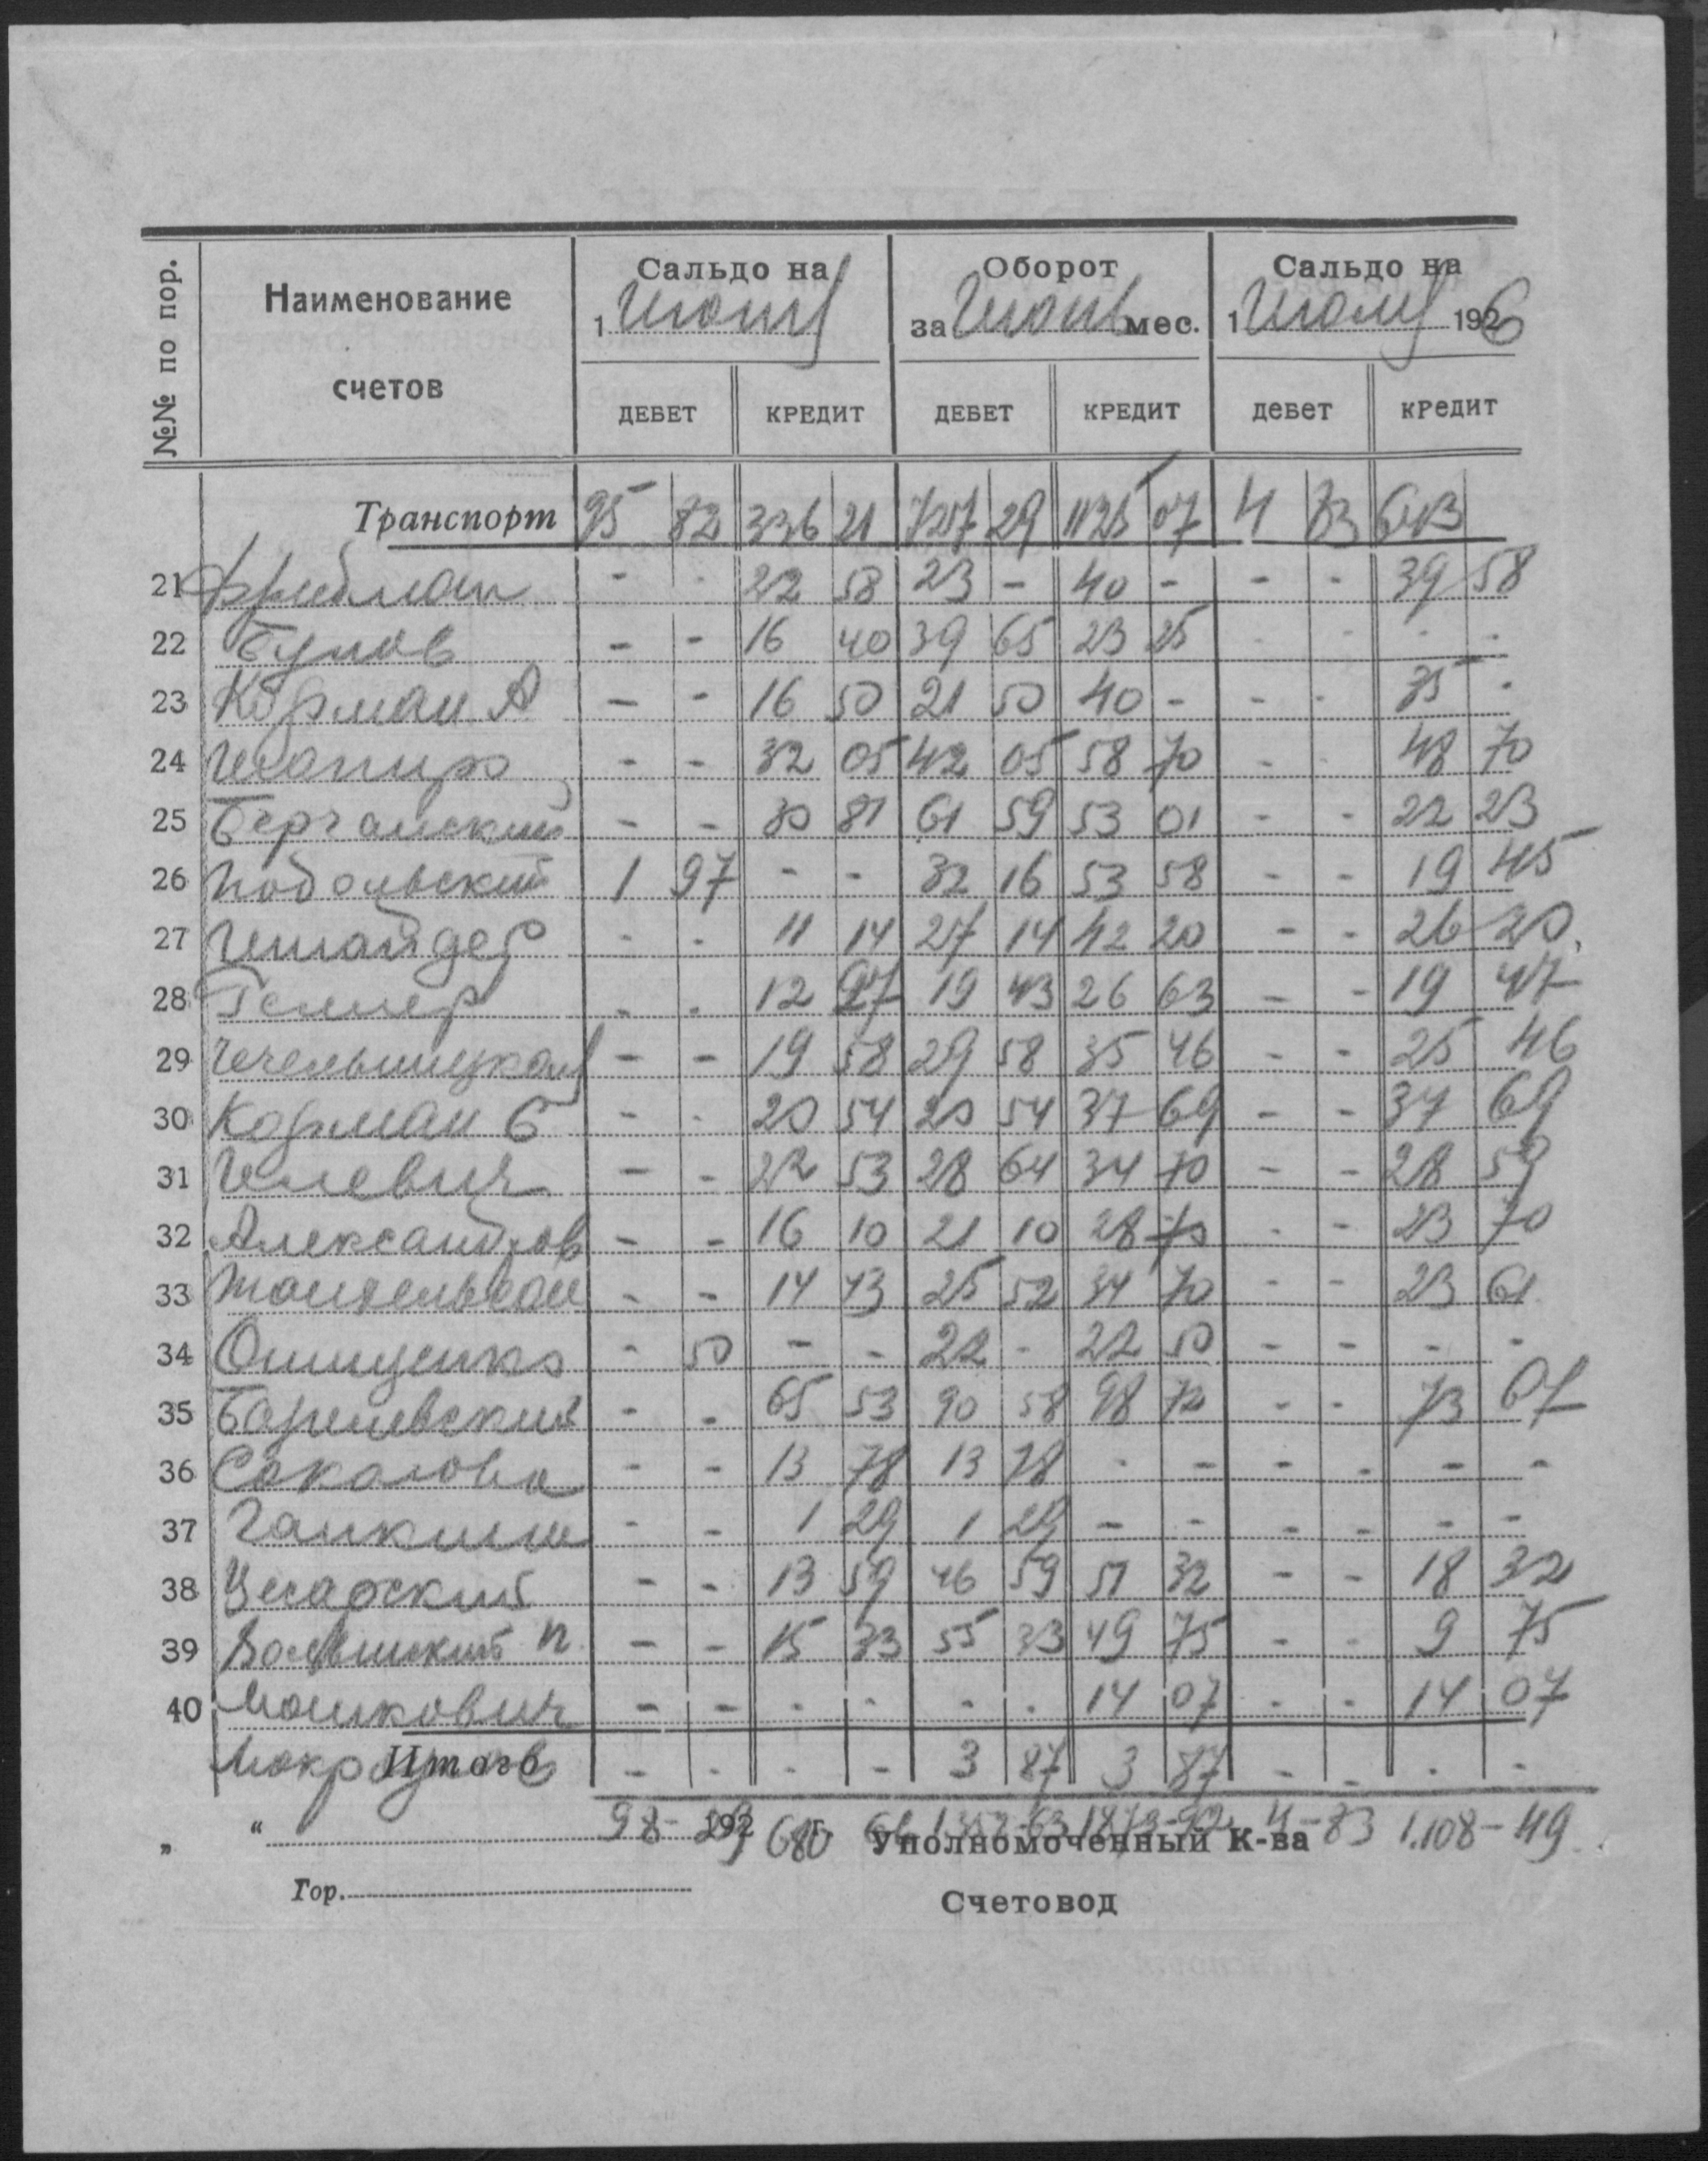 №№ по пор.
Наименование счетов
Сальдо на
1 Июню
Оборот
за Июнь мес.
Сальдо на
1 Июлю 1926
ДЕБЕТ КРЕДИТ ДЕБЕТ КРЕДИТ дебет кредит
Транспорт 95 82 336 21 727 29 1125 07 4 83 643
21 Фридман - - 22 58 23 - 40 - - - 39 58
22 Бунов - - 16 40 39 65 23 25 - - - -
23 Корман А - - 16 50 21 50 40 - - - 35 -
24 Шапиро - - 32 05 42 05 58 70 - - 48 70
25 Берчанский - - 30 81 61 59 53 01 - - 22 23
26 Подольский 1 97 - - 32 16 53 58 - - 19 45
27 Шнайдер - - 11 14 27 14 42 20 - - 26 20
28 - - 12 27 19 43 26 63 - - 19 47
29 Чечельницкая - - 19 58 29 58 35 46 - - 25 46
30 Корман Б - - 20 54 20 54 37 69 - - 37 69
31 - - 22 53 28 64 34 70 - - 28 59
32 Александров - - 16 10 21 10 28 70 - - 23 70
33 - - 14 43 25 52 34 70 - - 23 61
34 Онищенко - 50 - - 22 - 22 50 - - - -
35 Баришевский - - 65 53 90 58 98 72 - - 73 67
36 Соколова - - 13 78 13 78 - - - - - -
37 - - 1 29 1 29 - - - - - -
38 - - 13 59 46 59 51 32 - - 18 32
39 Волынский П - - 15 33 55 33 49 75 - - 9 75
40 Мошкович - - - - - - 14 07 - - 14 07
Итого - - - - 3 87 3 87 - - - -
98 - 680 4 - 83 1.108 - 49
„ “ 192 г. Уполномоченный К-ва
Гор. Счетовод